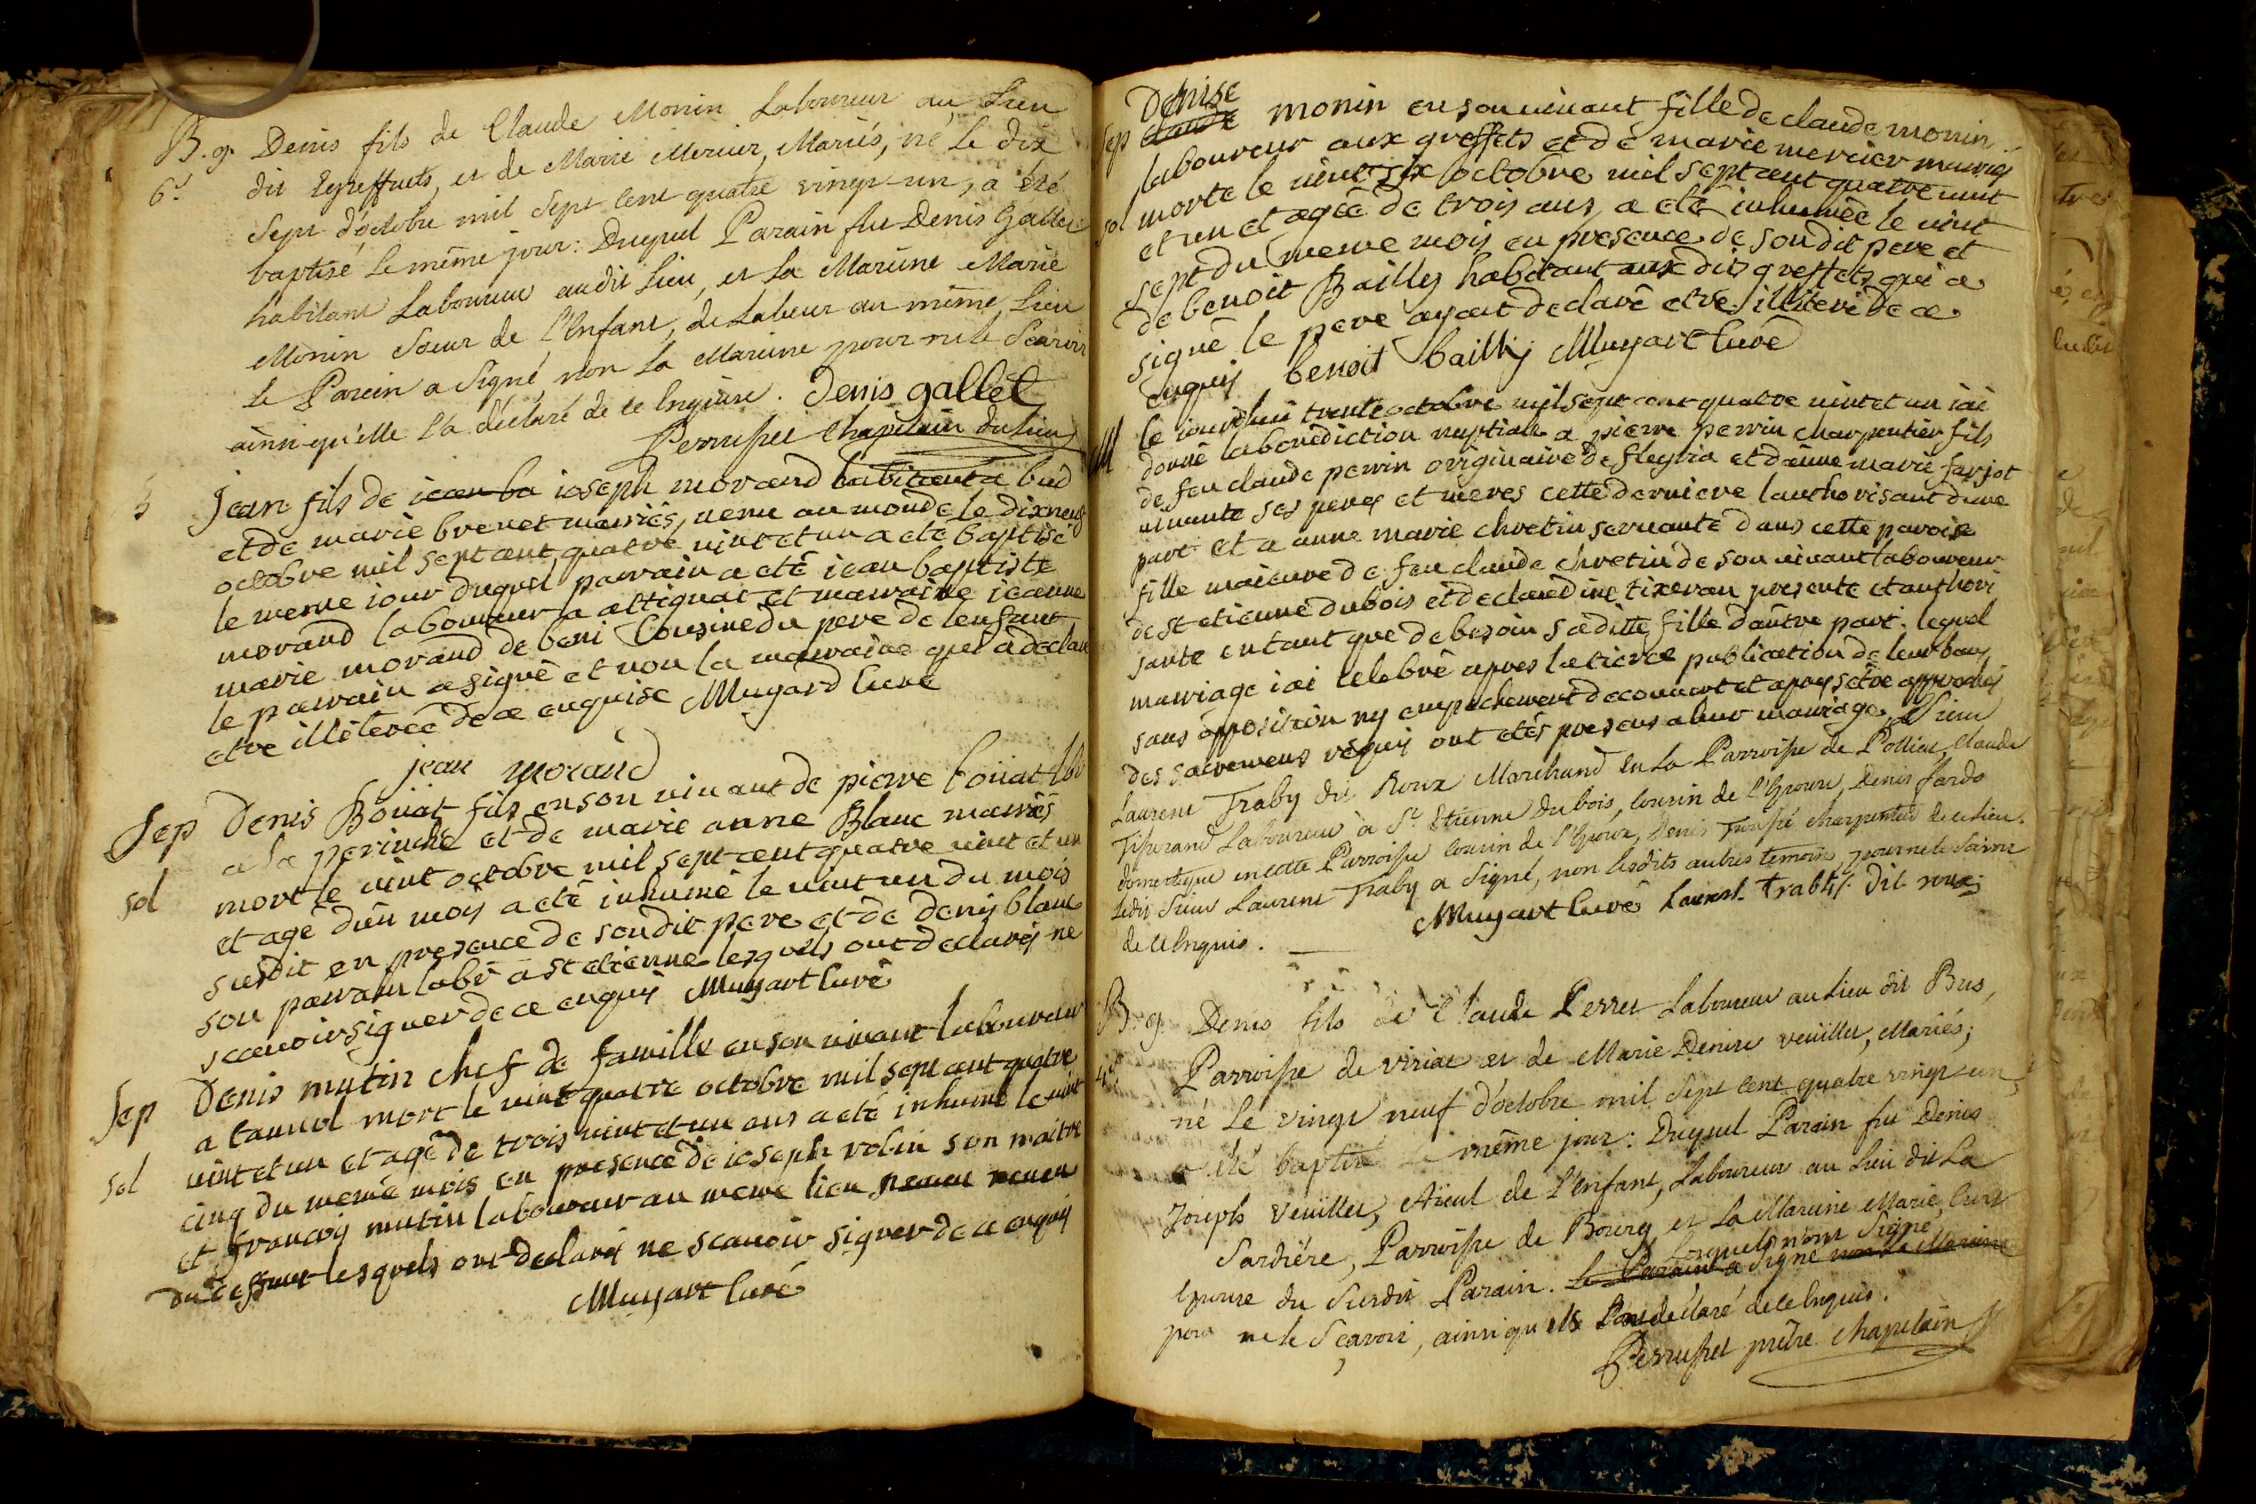 B. g. Denis fils de Claude Monin Laboureur au Lieu
6.e dit Egreffiets, et de Marie Mercier, Mariés, né le dix
sept d'octobre mil sept cent quatre vingt-un, a été
baptisé le même jour: Duquel Parain fut Denis Gallet
habitant Laboureur audit lieu, et la Mareine Marie
Monin Soeur de l'Enfant, de Labeur au même Lieu
le Parein a Signé, non la Mareine pour ne le Scavoir
ainsi qu'elle l'a déclaré de ce Enquise. Denis gallet
Perrussel chapelain du lieu
jean fils de jean ba ioseph morand habitant a bud
et de marie brevet mariés, venu au monde le dixneuf
octobre mil sept cent quatre vint et un a eté baptisé
le meme iour duquel parrain a eté iean baptiste
morand laboureur a attignat et marraine ieanne
marie morand de beni cousine du pere de lenfant
le parrain a signé et non la marraine qui a declaré
etre illiterée de ce enquise Mugard Curé
jean morand
Sep Denis Boüat fils en son vivant de pierre boüat lab
a la perinche et de marie anne Blanc mariés
sol mort le vint octobre mil sept cent quatre vint et un
et agé d'un mois a eté inhumé le vint un du mois
susdit en presence de son dit pere et de denis blanc
son parrain labr a st etienne lesquels ont declarés ne
scavoir signer de ce enquis Mugart Curé
Sep Denis mutin chef de famille en son vivant laboureur
a tanvol mort le vint quatre octobre mil sept cent quatre
sol vint et un et agé de trois vint et un ans a eté inhumé le vint
cinq du meme mois en presence de ioseph robin son maitre
et francois mutin laboureur au meme lieu neveu
du deffunt lesquels ont declarés ne scavoir signer de ce enquis
Mugart Curé
Denise
Sep claude monin en son vivant fille de claude monin
laboureur aux greffets et de marie mercier mariés
morte le vint six octobre mil sept cent quatre vint
sol et un et agée de trois ans a eté inhumée le vint
sept du meme mois en presence de son dit pere et
de benoit Bailly habitant aux dits greffets qui a
signé le pere ayant declaré etre illiteré de ce
enquis benoit bailly Mugart Curé
M le iourdhui trente octobre mil sept cent quatre vint et un iai
donné la benediction nuptiale a pierre perrin charpentier fils
de feu claude perrin originaire de fleyria et d'anne marie farjot
vivante ses peres et meres cette derniere lauthorisant dune
part et a anne marie chretin servante dans cette paroise
fille maieure de feu claude chretin de son vivant laboureur
de st etienne dubois et de claudine tixeran presente et authori
sante en tant que de besoin sa ditte fille d'autre part. lequel
marriage iai celebré apres la tierce publication de leur bans
sans opposition ny empechement decouvert et apres setre approchés
des sacremens requis ont etés presens a leur mariage, Sieur
Laurent Traby dit Roux Marchand en la Parroisse de Polliat, Claude
Tisserand Laboureur à St. Etienne Dubois, cousin de l'Epouse, Denis Jardo
domestique en cette Parroisse cousin de l'Epoux, Denis Trussé charpentier de ce lieu.
Ledit Sieur Laurent Traby a Signé, non lesdits autres temoins, pour ne le Scavoir
de ce Enquis. Mugart Curé Laurent Traby dit roux
B. g. Denis fils de Claude Perret Laboureur au lieu dit Bus,
4.e Parroisse de viriat et de Marie Denise veüillet, Mariés,
né le vingt neuf d'octobre mil sept cent quatre vingt-un
a été baptisé le même jour: Duquel Parain fut Denis
Joseph Veüillet, Aïeul de l'Enfant, Laboureur au Lieu dit La
Sardiére, Parroisse de Bourg et la Mareine Marie Curt
Epouse du Susdit Parain. Lesquels n'ont Signé
le Parain a Signé non la Mareine
pour ne le Sçavoir, ainsi qu'ils l'ont déclaré de ce Enquis.
Perrussel prêtre chapelain